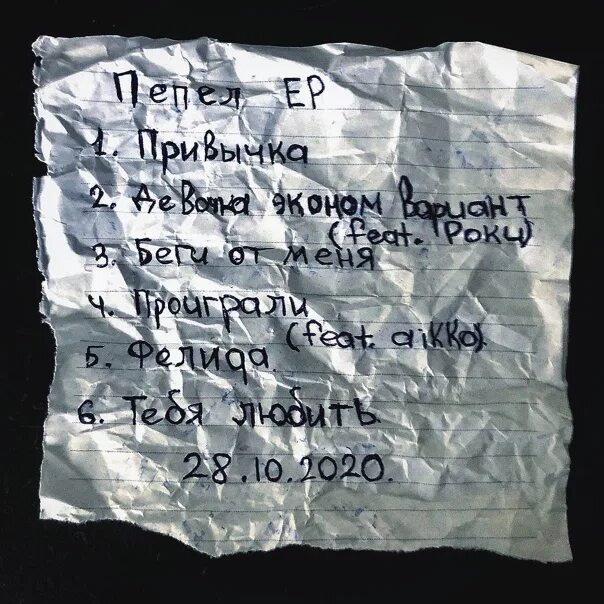 Пепел EP
1. Привычка
2. Девочка эконом вариант
(feat. Роки)
3. Беги от меня
4. Проиграли
(feat. aikko)
5. Фелица
6. Тебя любить
28.10.2020.